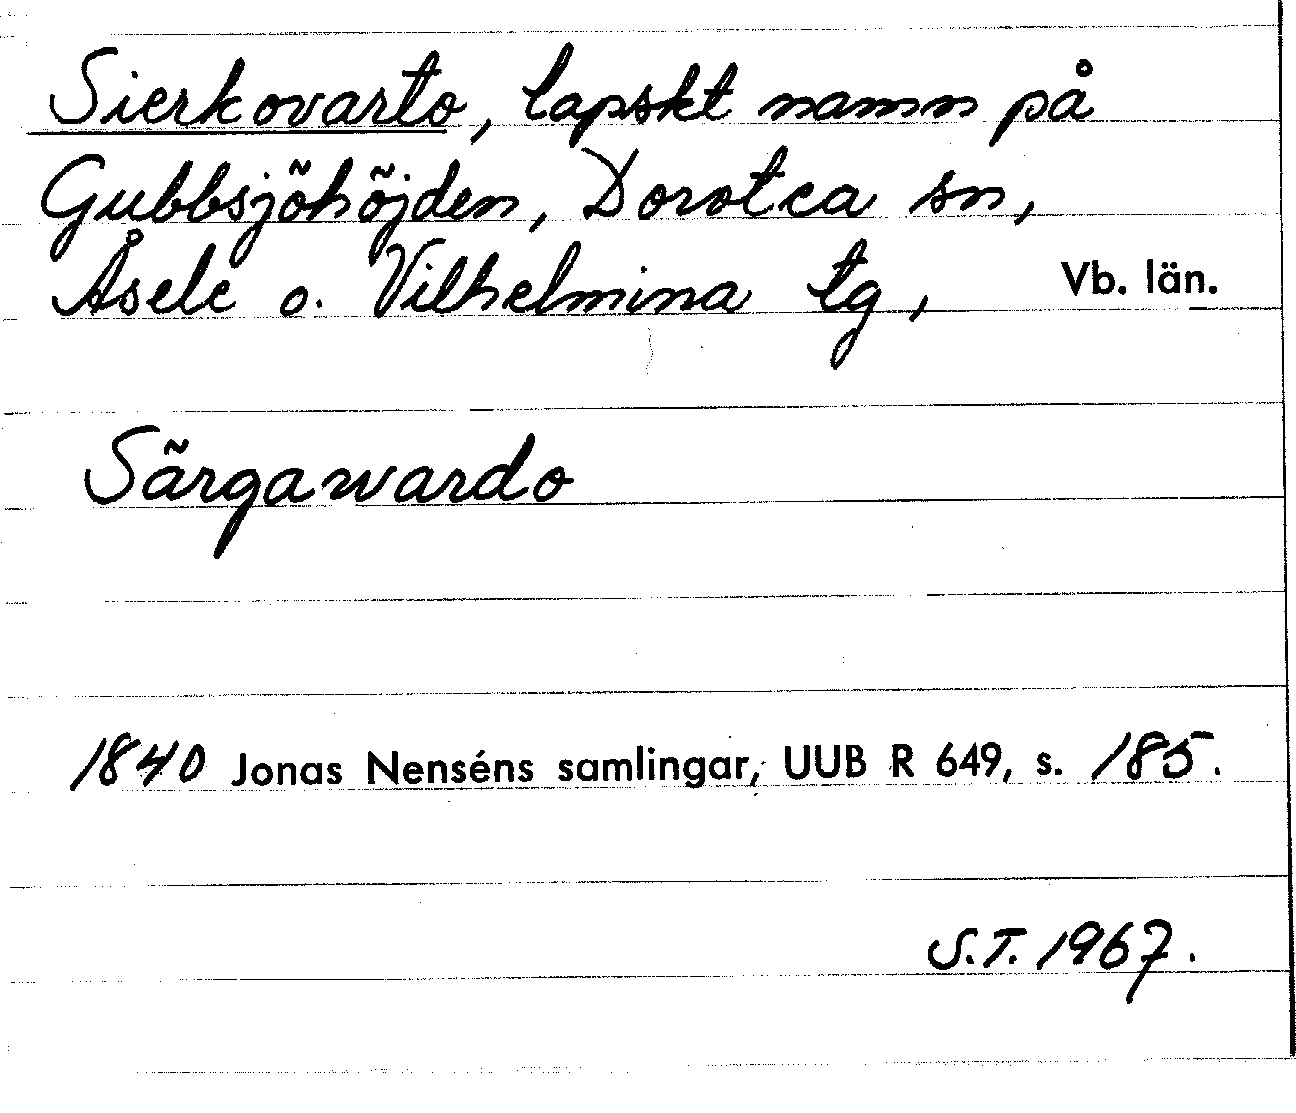 Sierkovarto, lapskt namn på
Gubbsjöhöjden, Dorotea sn,
Åsele o. Vilhelmina tg, Vb. län.
Särgawardo
1840 Jonas Nenséns samlingar, UUB R 649, s. 185.
S.T. 1967.